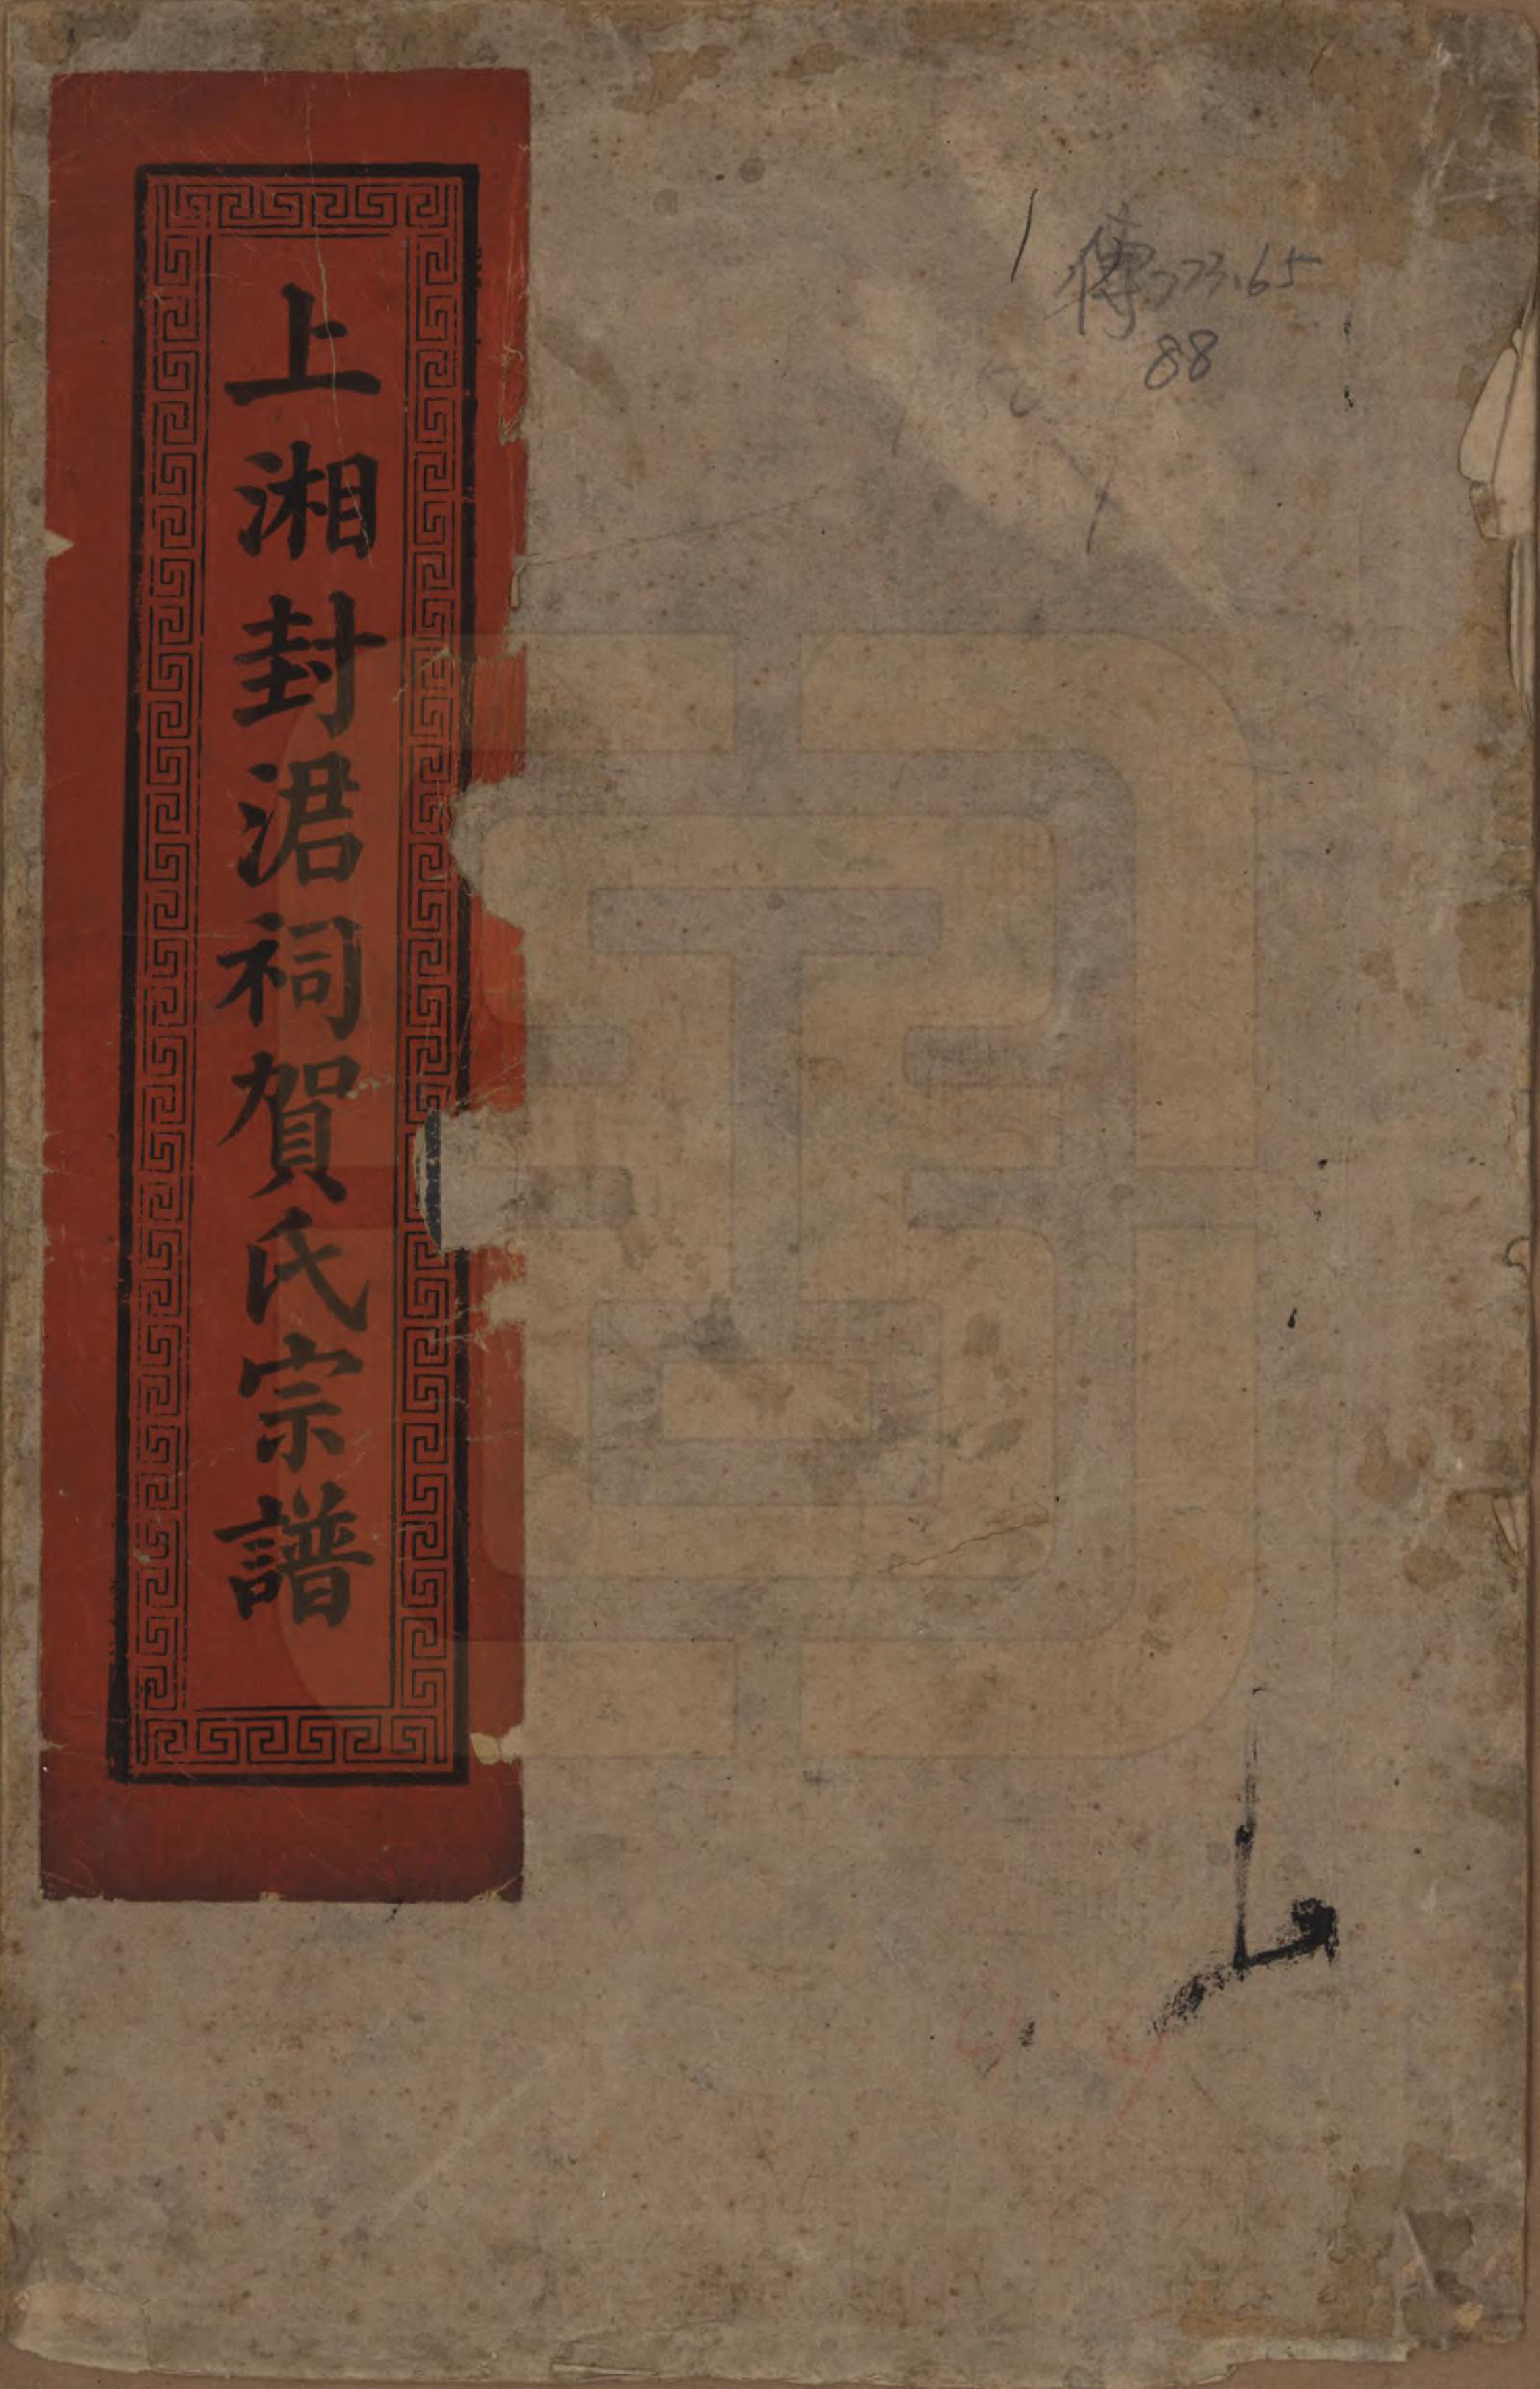 上湘封涒祠賀氏宗譜
傳773.65
88